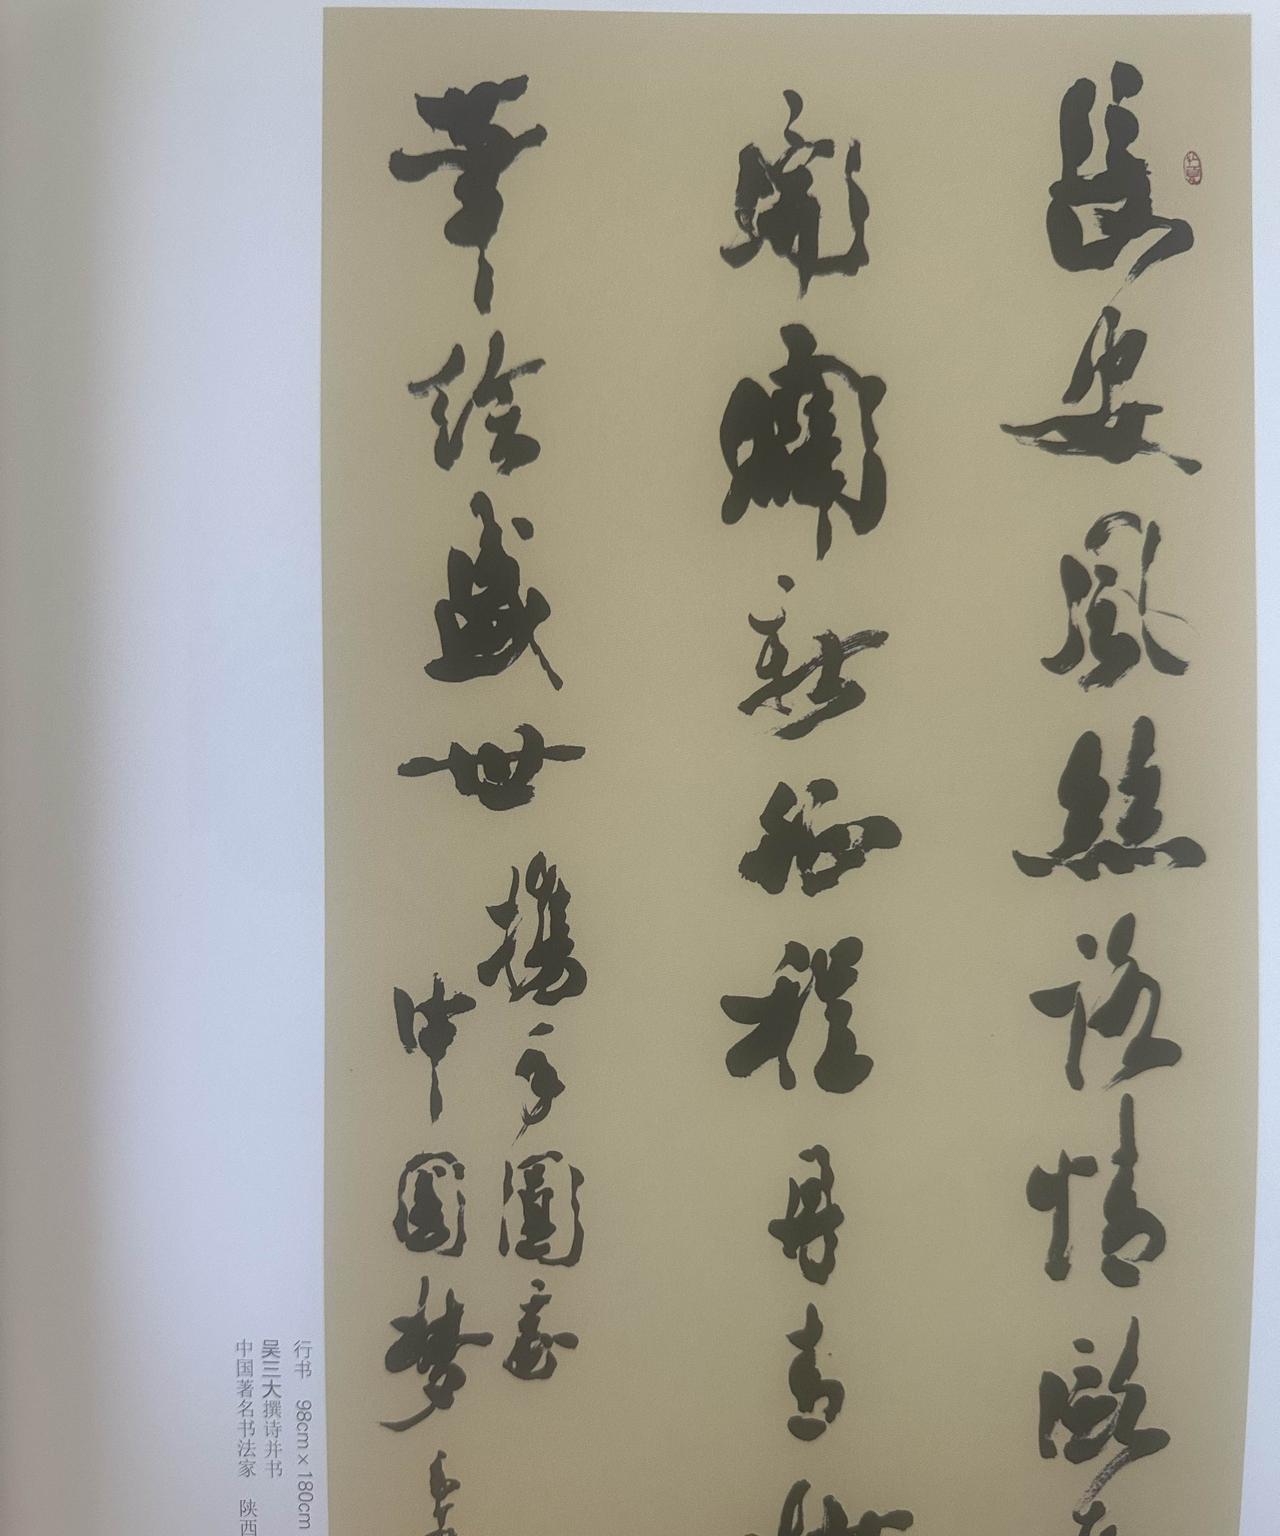 長安風絲路情歐
開闢新征程丹青
筆繪盛世攜手圓
中國夢
行书 98cm×180cm
吴三大撰诗并书
中国著名书法家 陕西